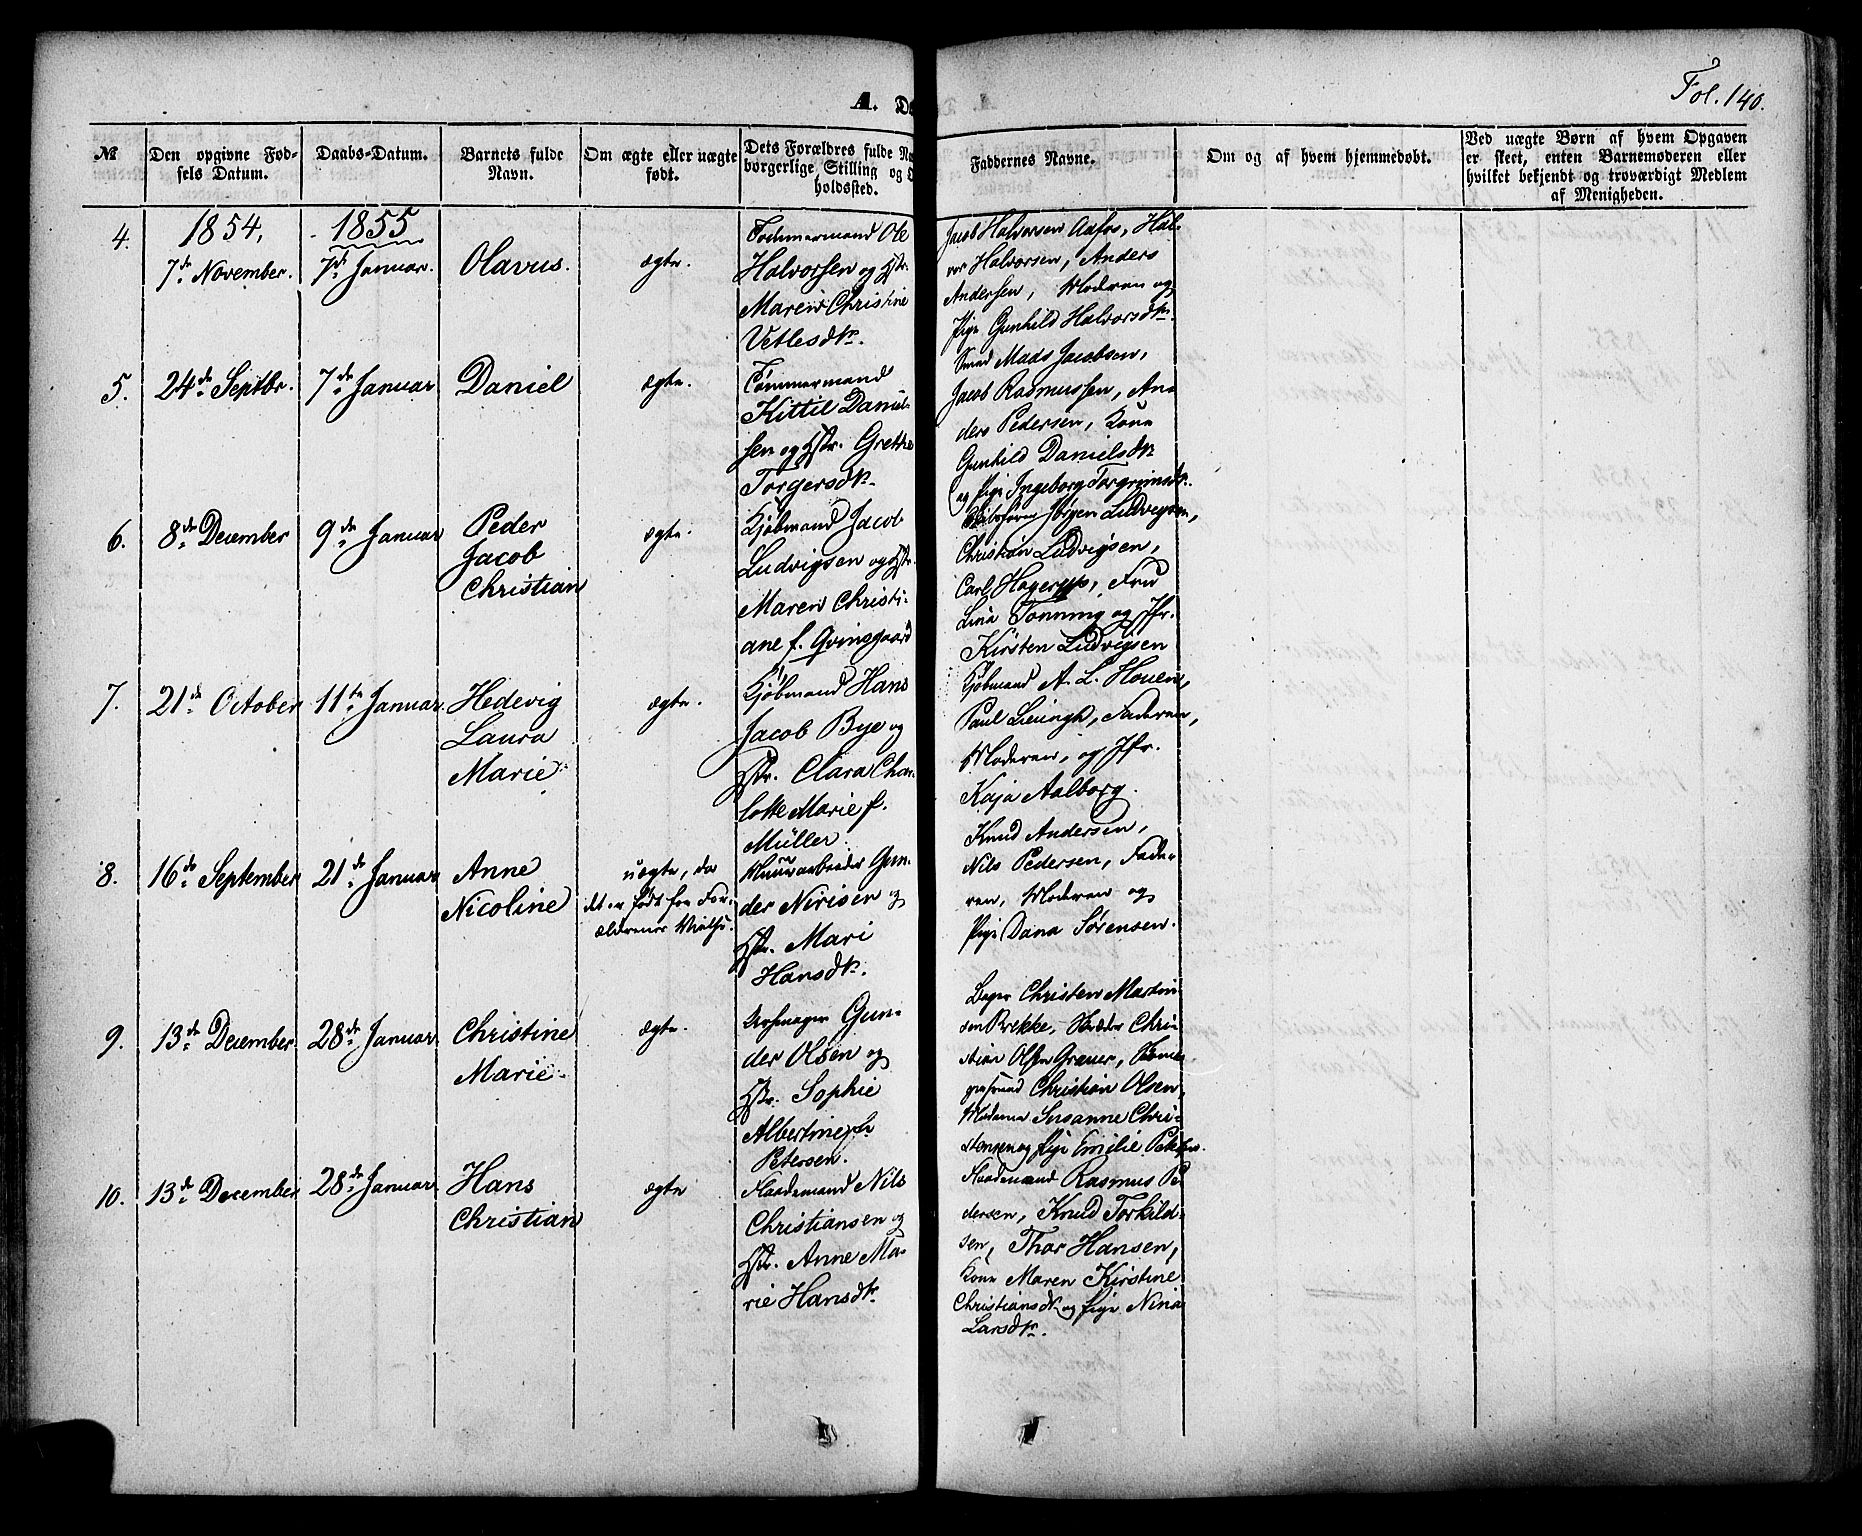 A. D
Fol. 140.
№
Den opgivne Fød-
sels Datum.
Daabs-Datum.
Barnets fulde
Navn.
Om ægte eller uægte
født.
Dets Forældres fulde N
borgerlige Stilling og
holdssted.
Faddernes Navne.
Om og af hvem hjemmedøbt.
Ved uægte Børn af hvem Opgaven
er skeet, enten Barnemoderen eller
hvilket bekjendt og troværdigt Medlem
af Menigheden.
4.
1854,
7de November.
1855
7de Januar.
Olavus.
ægte.
Tømmermand Ole
Halvorsen og Hstr.
Maren Christine
Vetlesdtr.
Jacob Halvorsen Aafos, Hal-
vor Halvorsen, Anders
Andersen, Moderen og
Pige Gunhild Halvorsdtr.
5.
24de Septbr.
7de Januar
Daniel
ægte.
Tømmermand
Kittil Daniel-
sen og Hstr. Grethe
Torgersdtr.
Smed Mads Jacobsen,
Jacob Rasmussen, An
ders Pedersen, Kone
Gunhild Danielsdtr
og Pige Ingeborg Torgrimsdtr.
6.
8de December
9de Januar
Peder
Jacob
Christian
ægte.
Kjøbmand Jacob
Ludvigsen og Hstr.
Maren Christi-
ane f. Qvinsgaard
Jørgen Ludvigsen,
Christian Ludvigsen,
Carl Hagerup, Fru
Lina Tonning og Jfr.
Kirsten Ludvigsen
7.
21de October
11te Januar.
Hedevig
Laura
Marie
ægte.
Kjøbmand Hans
Jacob Bye og
Hstr. Clara Char-
lotte Marie f.
Müller
Kjøbmand A. L. Houen,
Paul Faderen,
Moderen, og Jfr.
Kaja Aalborg.
8.
16de September
21de Januar
Anne
Nicoline
uægte, da
det er født før For-
ældrenes Vielse.
Muurarbeider Gun-
der Nirisen og
Hstr. Mari
Hansdtr.
Knud Andersen,
Nils Pedersen, Fade-
ren, Moderen og
Pige Dana Sørensen.
9.
13de December
28de Januar
Christine
Marie
ægte.
Gun-
der Olsen og
Hstr. Sophie
Albertine f.
Petersen.
Bager Christen Martin
sen Brekke, Chri-
stian Olsen Graver,
Christian Olsen,
Madame Susanne Chri-
stensen og Pige Emilie Petersen.
10.
13de December
28de Januar
Hans
Christian
ægte
Haademand Nils
Christiansen og
Hstr. Anne Ma-
rie Hansdtr.
Haademand Rasmus Pe
dersen, Knud Torkild-
sen, Thor Hansen,
Kone Maren Kirstine
Christiansdtr og Pige Nina
Larsdtr.